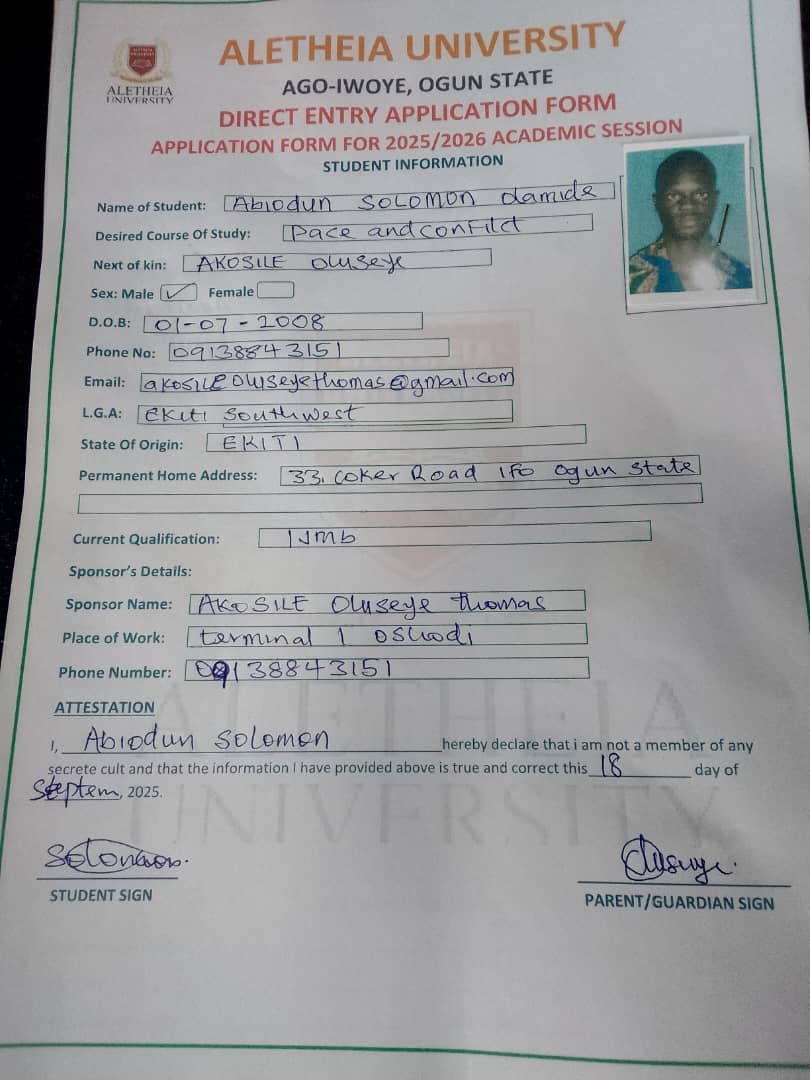 ALETHEIA UNIVERSITY
ALETHEIA UNIVERSITY
AGO-IWOYE, OGUN STATE
DIRECT ENTRY APPLICATION FORM
APPLICATION FORM FOR 2025/2026 ACADEMIC SESSION
STUDENT INFORMATION
Name of Student: Abiodun SOLOMON Damide
Desired Course Of Study: Pace and confilct
Next of kin: AKOSILE Oluseye
Sex: Male ✓ Female
D.O.B: 01-07-2008
Phone No: 09138843151
Email: akosileoluseyethomas@gmail.com
L.G.A: Ekiti Southwest
State Of Origin: EKITI
Permanent Home Address: 33, Coker Road Ifo Ogun State
Current Qualification: IJmb
Sponsor's Details:
Sponsor Name: AKOSILE Oluseye thomas
Place of Work: terminal 1 oshodi
Phone Number: 09138843151
ATTESTATION
I, Abiodun Solomon hereby declare that i am not a member of any
secrete cult and that the information I have provided above is true and correct this 18 day of
Septem, 2025.
Solomon Oluseye
STUDENT SIGN PARENT/GUARDIAN SIGN
ALETHEIA
UNIVERSITY